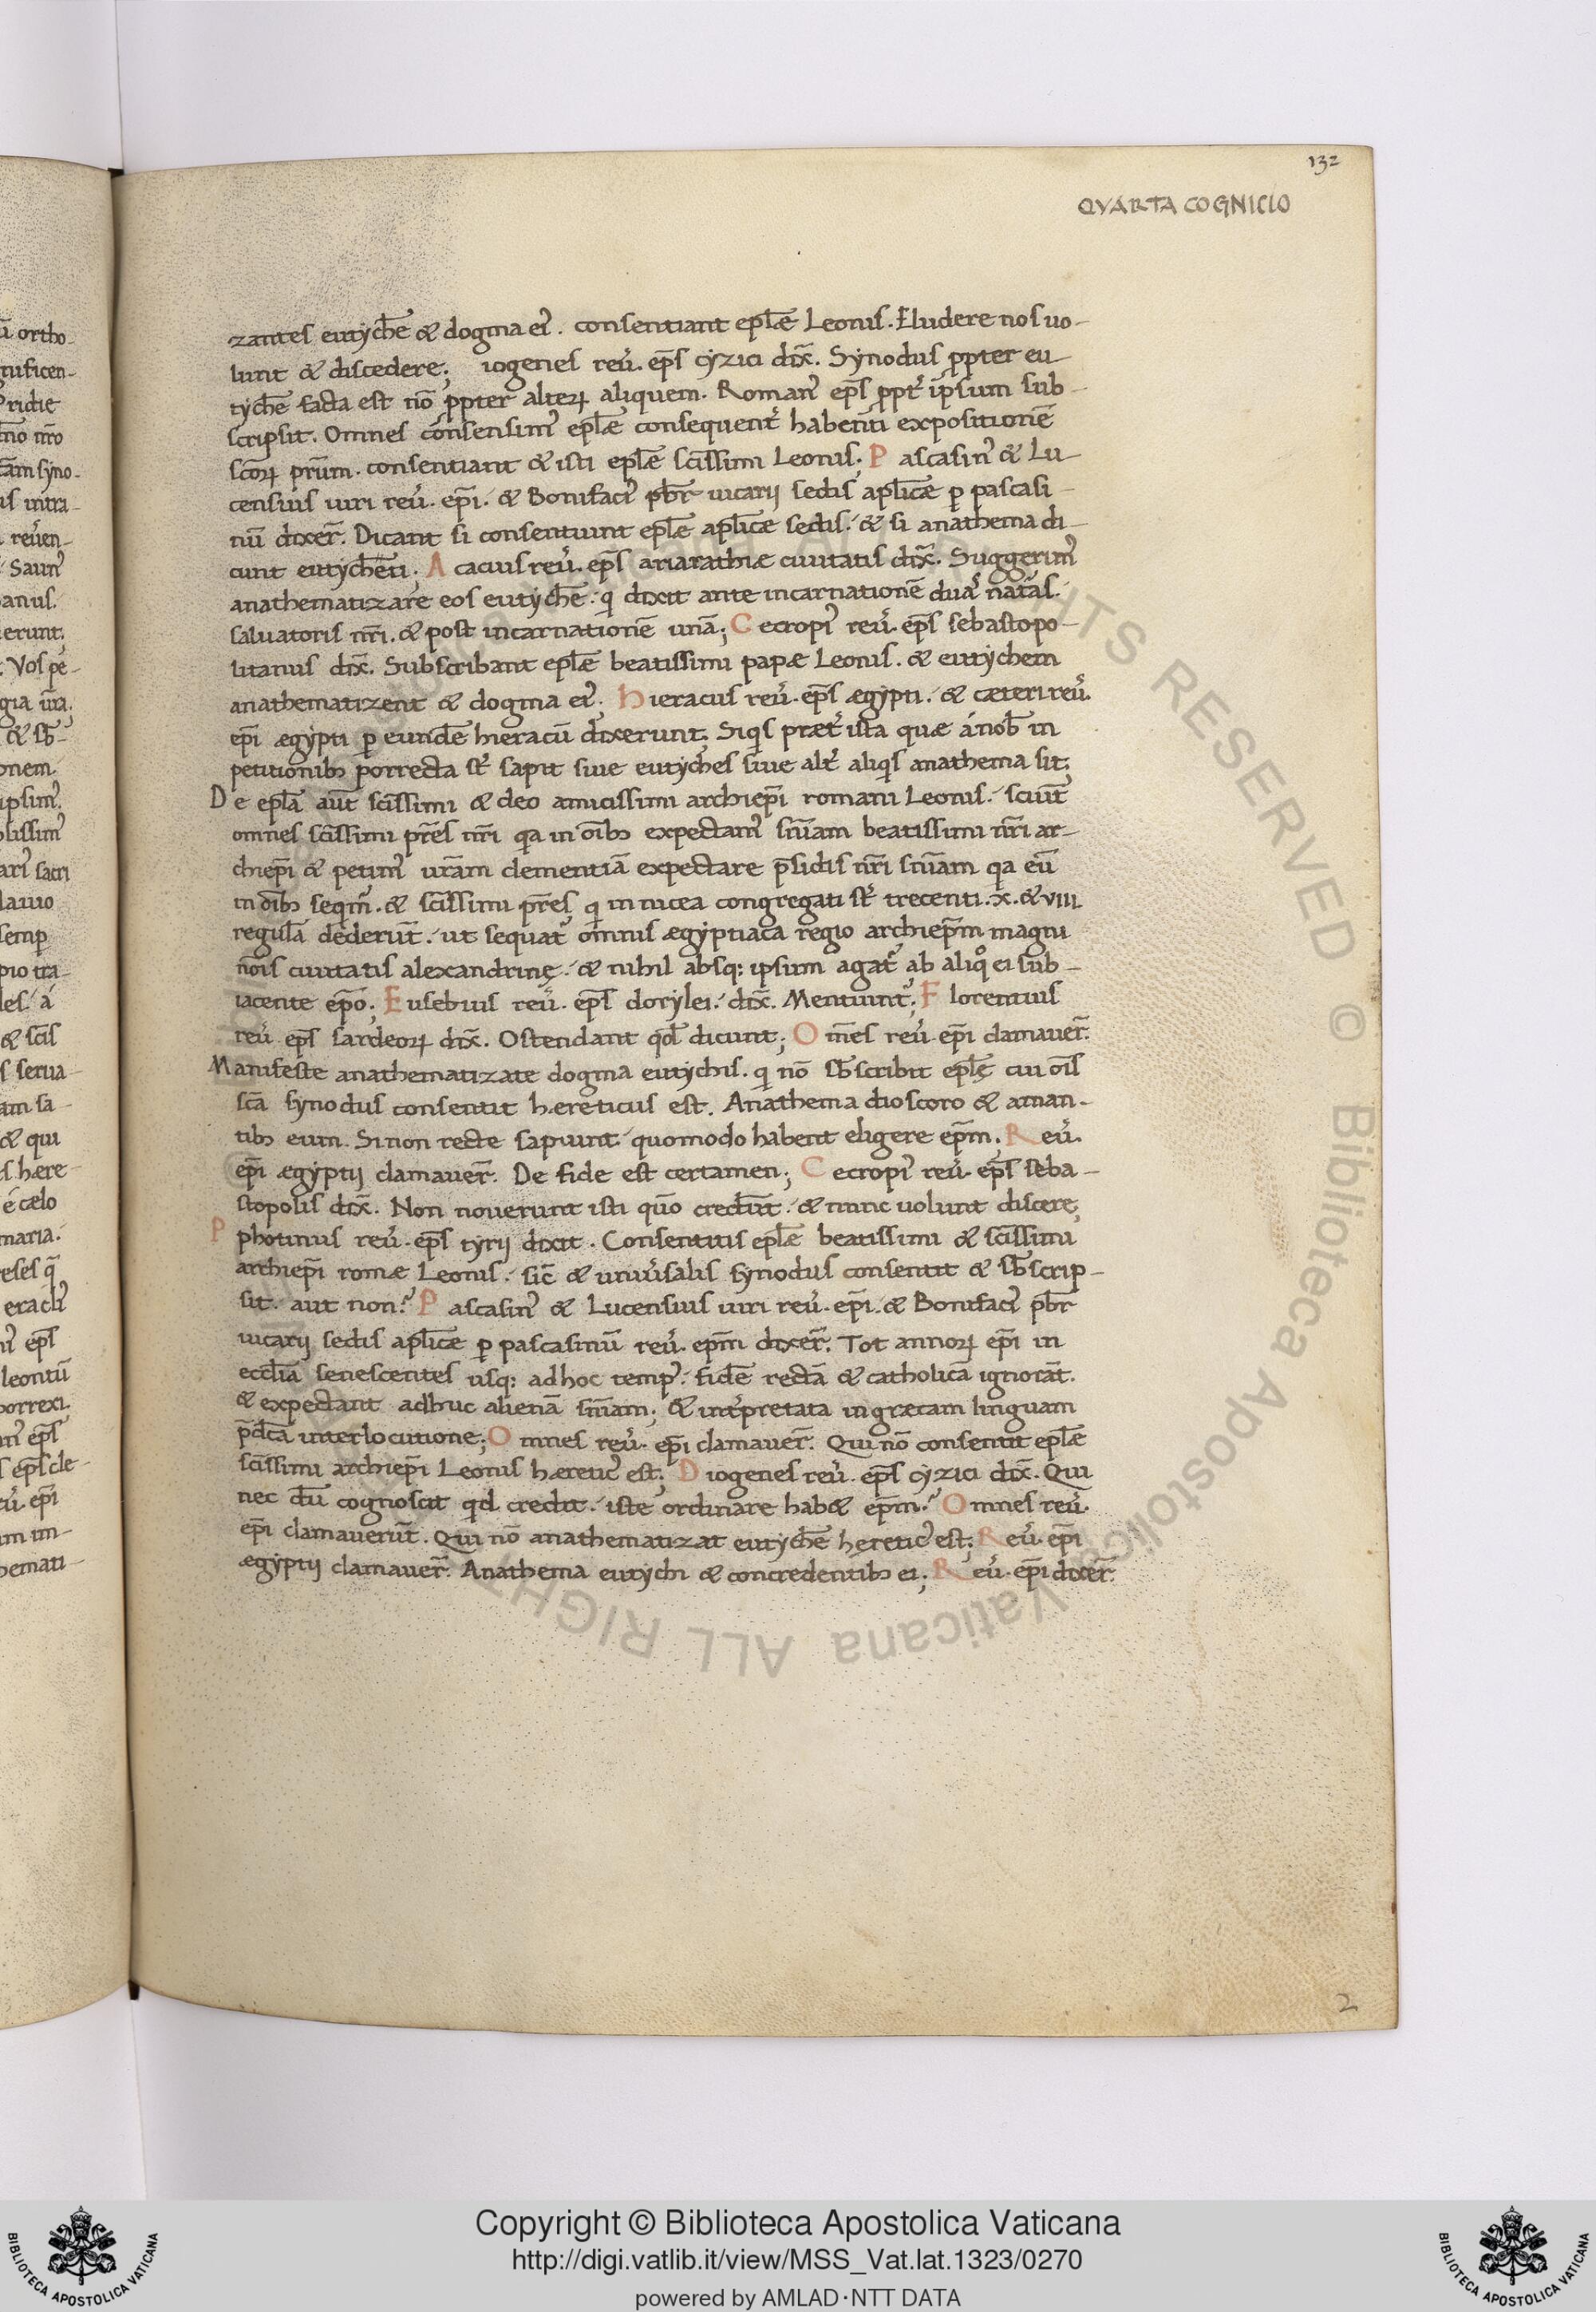 132
QVARTA COGNICIO
zantes eutychē & dogma ei᾿. consentiant epl̄æ Leonis. Eludere nos uo-
lunt & discedere; iogenes reu᾿. ep̄s cyzici dix̄. Synodus ꝓpter eu-
tychē facta est nō ꝓpter alterꝝ aliquem. Roman᾿ ep̄s ꝓpt᾿ ip̄sum sub-
scripsit. Omnes consensim᾿ epl̄æ consequent᾿ habenti expositionē
sc̄orꝝ pr̄um. consentiant & isti epl̄æ sc̄issimi Leonis. P ascasin᾿ & Lu-
censius uiri reu᾿. ep̄i. & Bonifaci᾿ pb̄r uicarij sedis apl̄icæ ꝑ pascasi-
nū dixer̄. Dicant si consentiunt epl̄æ apl̄icæ sedis. & si anathema di-
cunt eutycheti; A cacius reu᾿. ep̄s ariarathiæ ciuitatis dix̄. Suggerim᾿
anathematizare eos eutychē. q̇ dixit ante incarnationē duas nat᾿as.
saluatoris nr̄i. & post incarnationē unā; C ecropi᾿ reu᾿. ep̄s sebastopo-
litanus dix̄. Subscribant epl̄æ beatissimi papæ Leonis. & eutychem
anathematizent & dogma ei᾿; H ieracus reu᾿. ep̄s ægypti. & cæteri reu᾿.
ep̄i ægypti ꝑ eundē hieracū dixerunt; Siq̇s præt᾿ ista quæ á nob̄ in
petitionibꝫ porrecta st᾿ sapit siue eutyches siue alt᾿ aliq̇s anathema sit;
De epl̄a aut̄ sc̄issimi & deo amicissimi archiep̄i romani Leonis. sciūt
omnes sc̄issimi pr̄es nr̄i q̇a in oīb; expectam᾿ sn̄iam beatissimi nr̄i ar-
chiep̄i & petim᾿ ur̄am clementiā expectare p̄sidis nr̄i sn̄iam q̇a eū
in oīb; seqm᾿. & sc̄issimi pr̄es q̇ in nicea congregati st᾿ trecenti. x. & viii
regulā dederūt. ut sequat᾿ omnis ægyptiaca regio archiep̄m magni
nōis ciuitatis alexandrinę. & nihil absq; ipsum agat᾿ ab aliqͦ ei sub-
iacente ep̄o; E usebius reu᾿. ep̄s dorylei. dix̄. Mentiunt᾿; F lorentius
reu᾿ ep̄s sardeorꝝ dix̄. Ostendant qd̄ dicunt; O m̄es reu᾿. ep̄i clamauer̄.
Manifeste anathematizate dogma eutychis. q̇ nō sb̄scribit epl̄ę cui oīs
sc̄a synodus consentit hereticus est. Anathema dioscoro & aman-
tibꝫ eum. Si non recte sapiunt quomodo habent eligere ep̄m. R eu᾿.
ep̄i ægyptij clamauer̄. De fide est certamen; C ecropi᾿ reu᾿. ep̄s seba-
stopolis dix̄. Non nouerunt isti quō credūt. & nunc uolunt discere;
P photinus reu᾿. ep̄s tyrij dixit. Consentitis epl̄æ beatissimi & sc̄issimi
archiep̄i romæ Leonis. sic̄ & uniu᾿salis synodus consentit & sb̄scrip-
sit. aut non? P ascasin᾿ & Lucensius uiri reu᾿. ep̄i. & Bonifaci᾿ pb̄r
uicarij sedis apl̄icæ ꝑ pascasinū reu᾿. ep̄m dixer̄. Tot annorꝝ ep̄i in
eccl̄ia senescentes usq; ad hoc temp᾿. fidē rectā & catholicā ignorāt.
& expectant adhuc alienā sn̄iam; & int᾿pretata in græcam linguam
p̄dc̄a interlocutione; O mnes reu᾿. ep̄i clamauer̄. Qui nō consentit epl̄æ
sc̄issimi archiep̄i Leonis hæretic᾿ est; D iogenes reu᾿. ep̄s cyzici dix̄. Qui
nec dū cognoscit qd credit. iste ordinare hab& ep̄m? O mnes reu᾿.
ep̄i clamauerūt. Qui nō anathematizat eutychē heretic᾿ est; R eu᾿. ep̄i
ægyptij clamauer̄. Anathema eutychi & concredentibꝫ ei; R eu᾿. ep̄i dixer̄.
2
Copyright © Biblioteca Apostolica Vaticana
http://digi.vatlib.it/view/MSS_Vat.lat.1323/0270
powered by AMLAD·NTT DATA